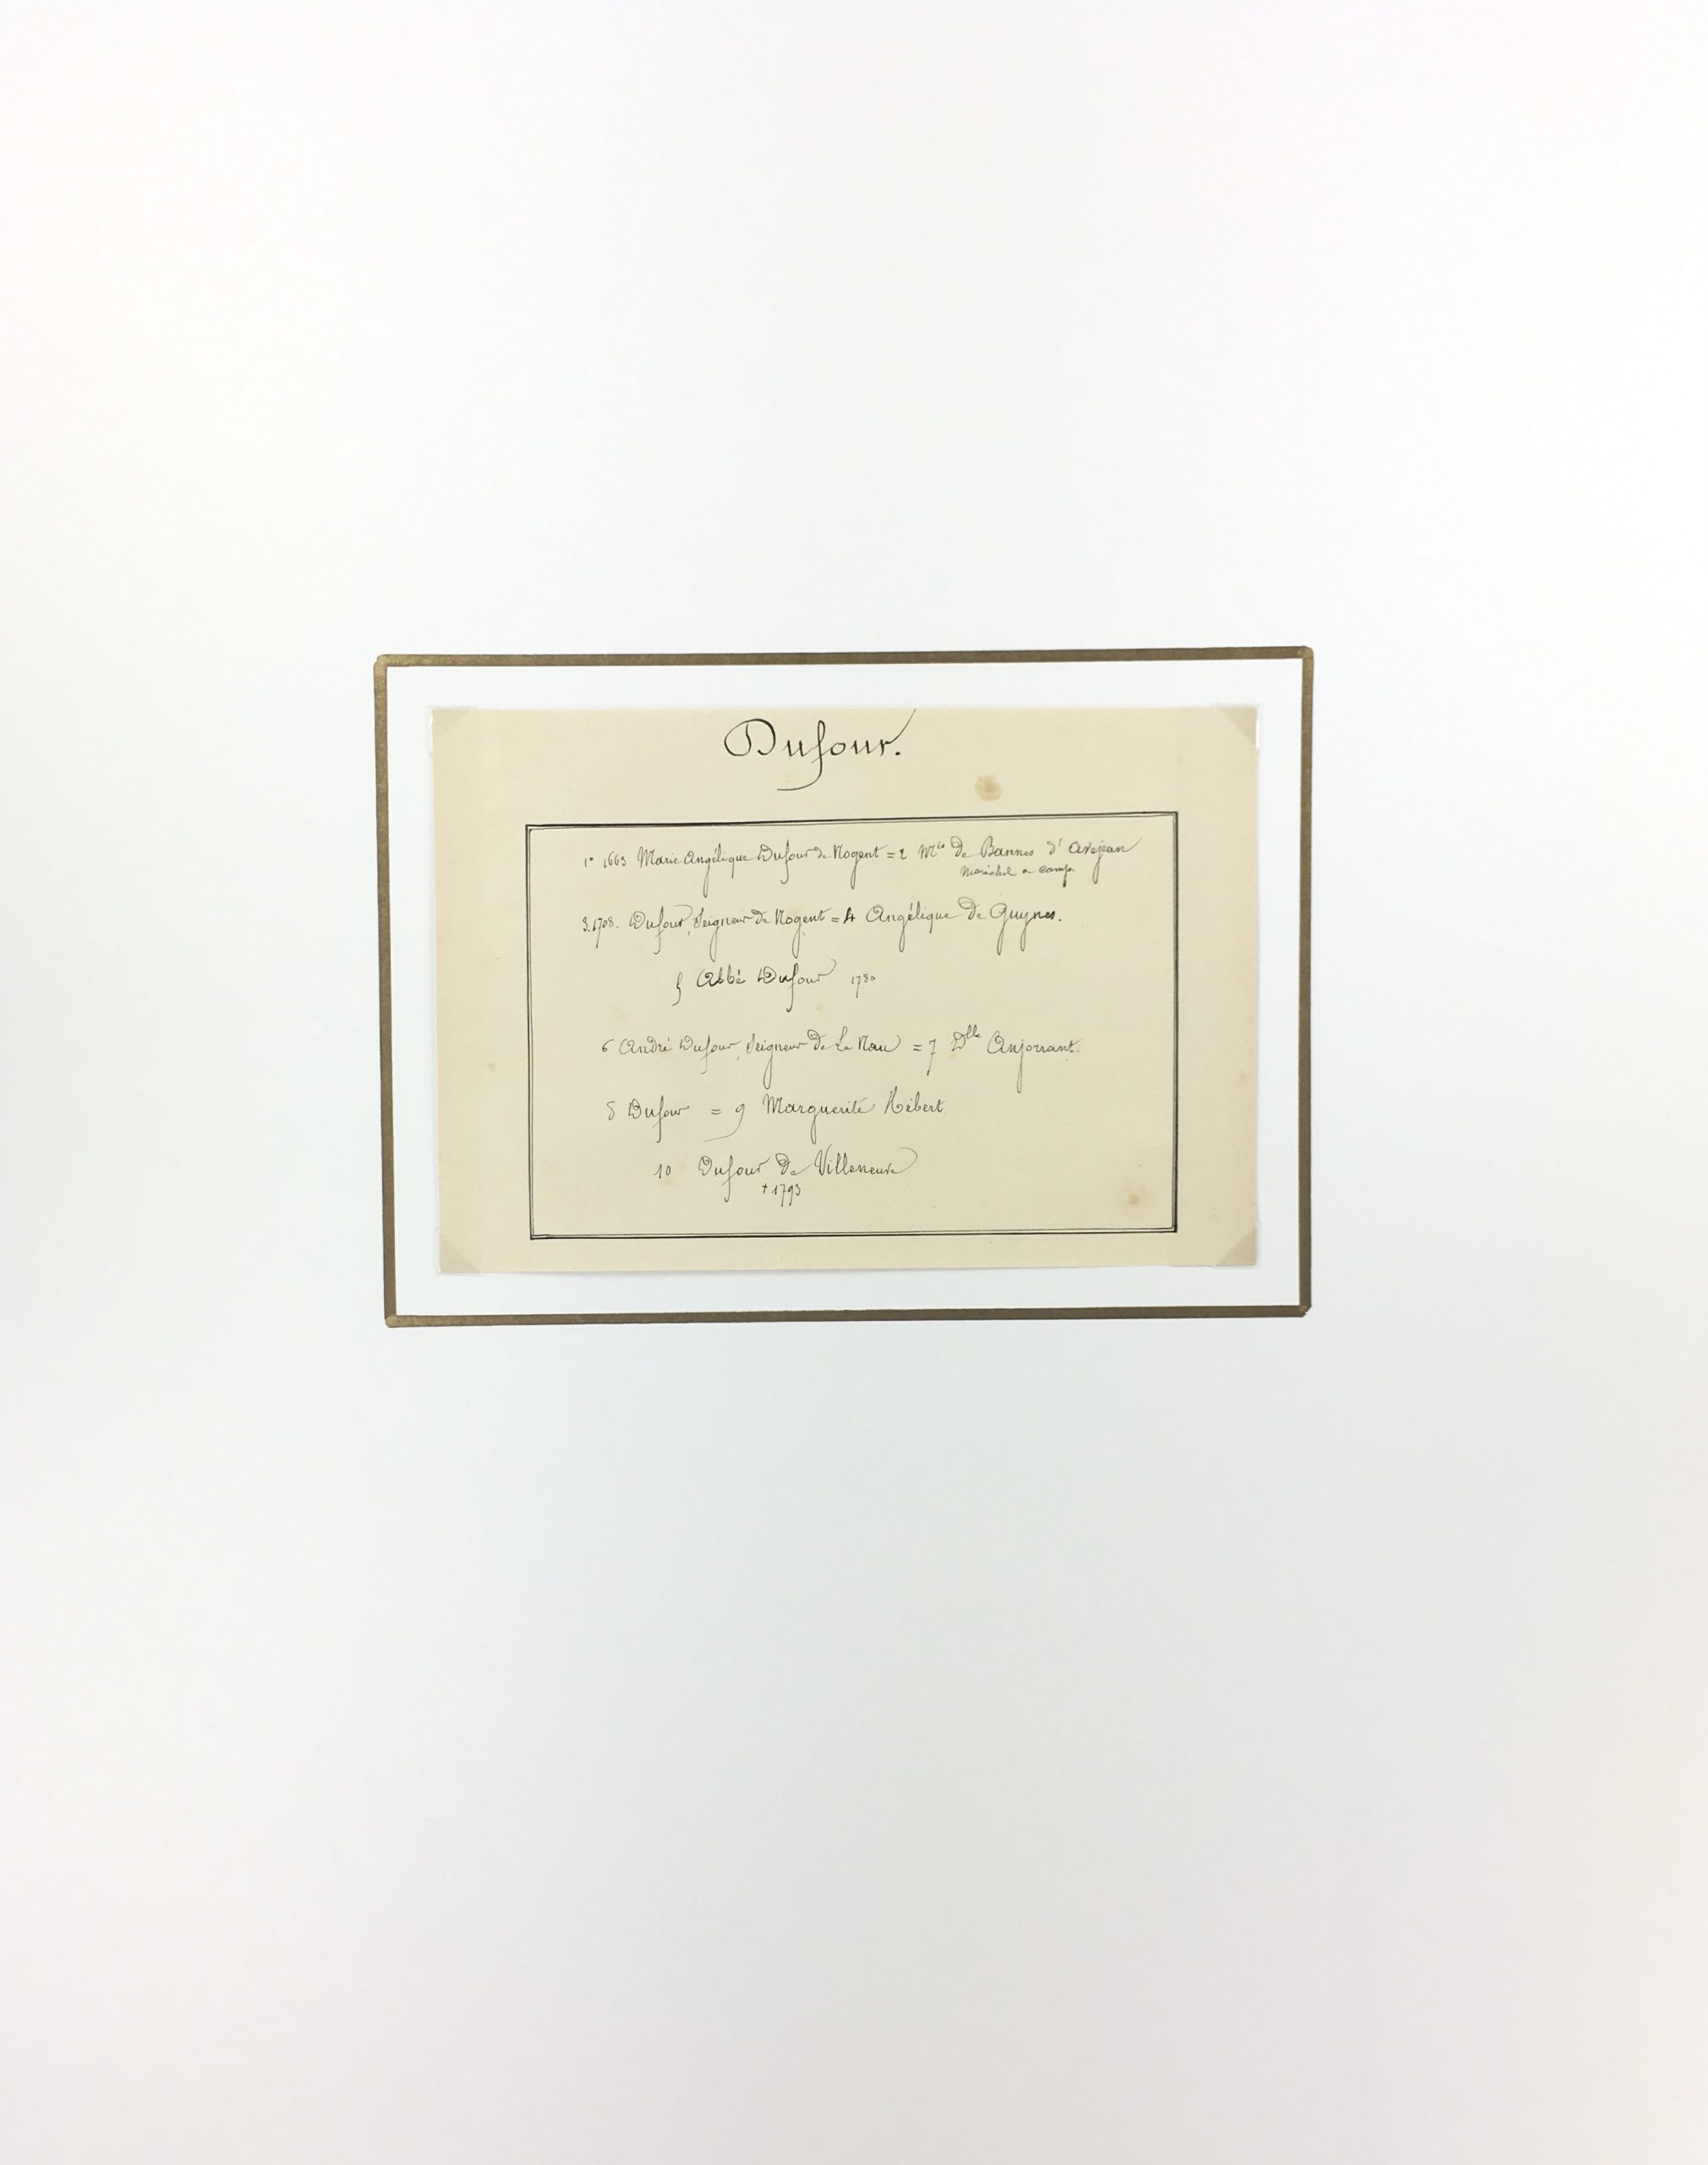 Dufour.
1° 1663 Marie Angélique Dufour de Nogent = 2 Mis de Bannes d' Avejean
Maréchal de Camp
3. 1708. Dufour, Seigneur de Nogent = 4 Angélique de Guynes.
5 Abbé Dufour 1780
6 André Dufour, Seigneur de La Nau = 7 Dlle Anjorrant.
8 Dufour = 9 Marguerite Hébert
10 Dufour de Villeneuve
+ 1793